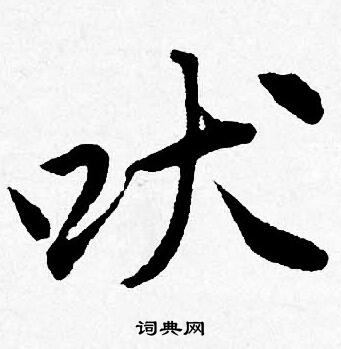 吠
词典网